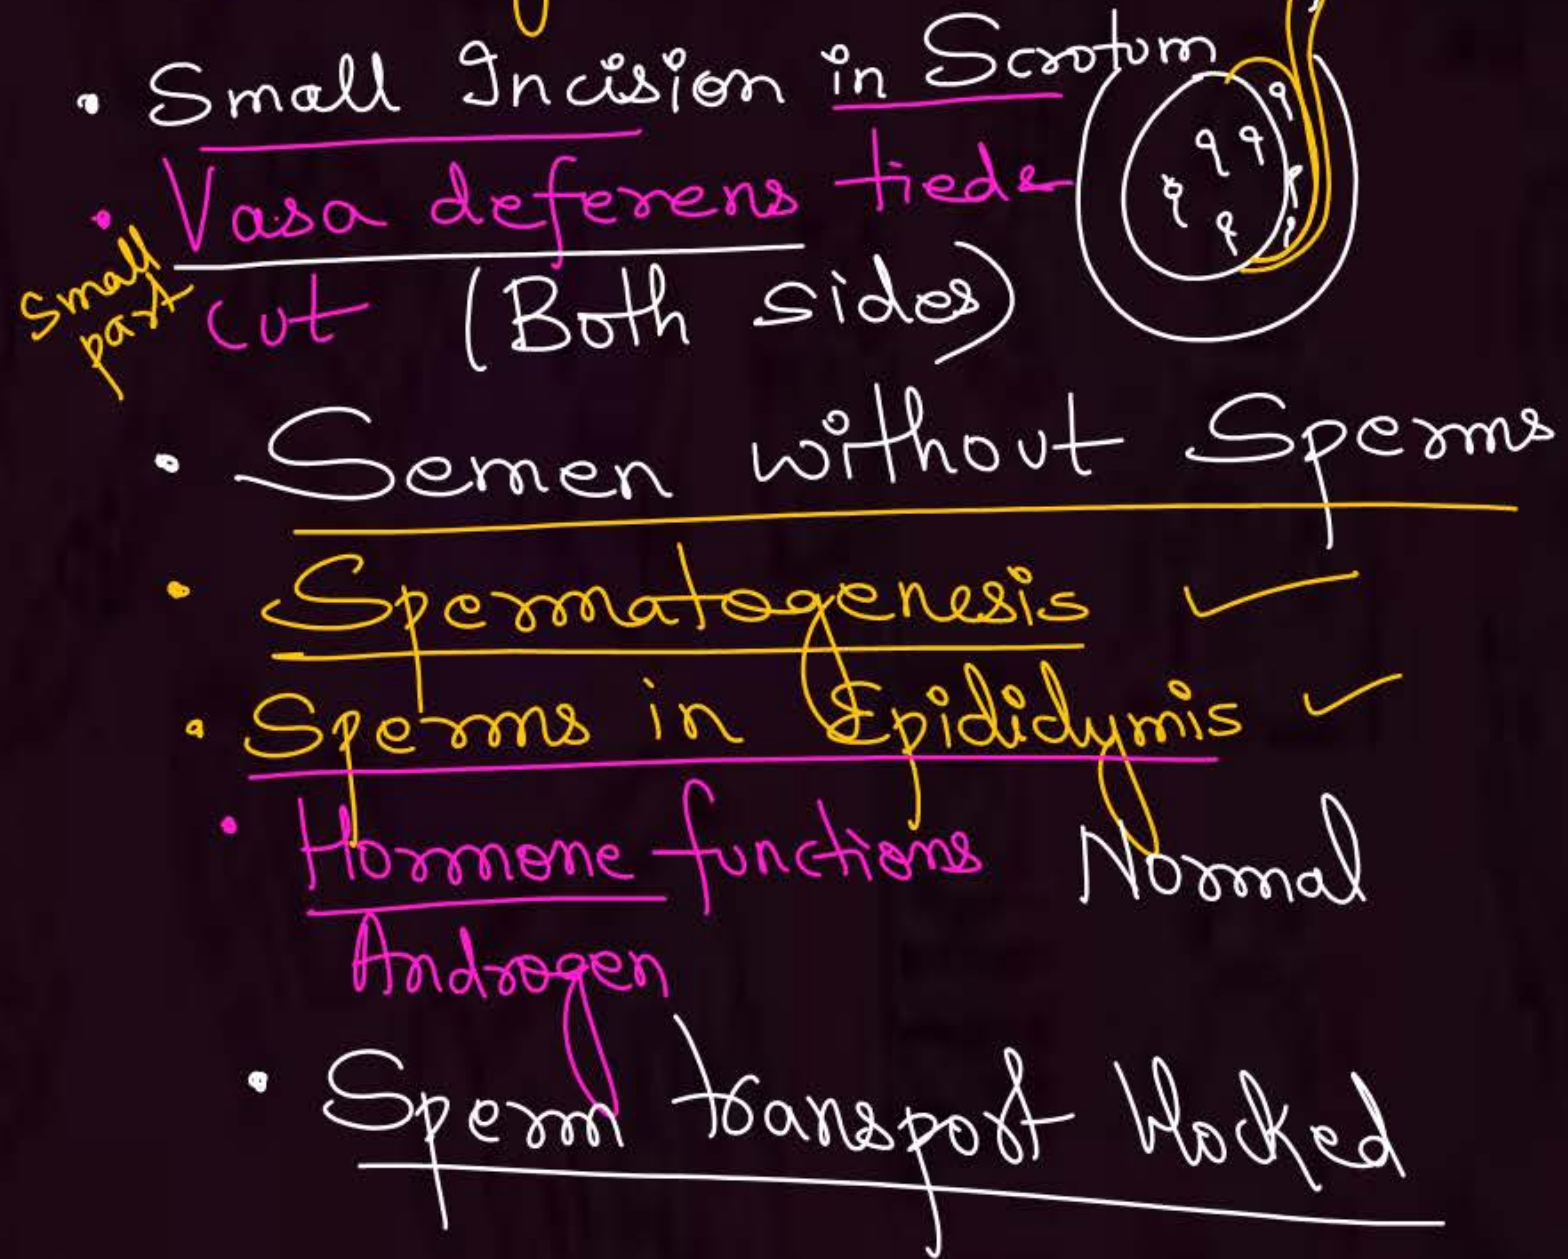 • Small Incision in Scrotum
• Vasa deferens tied &
small part
cut (Both sides)
• Semen without Sperms
• Spermatogenesis ✓
• Sperms in Epididymis ✓
• Hormone functions Normal
Androgen
• Sperm transport blocked